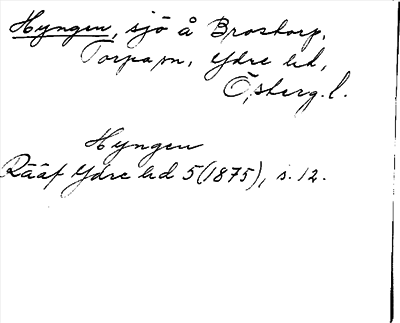 Hyngen, sjö å Brostorp,
Torpa sn, Ydre hd,
Östberg. l.
Hyngen
Rääf Ydre hd 5(1875), s. 12.